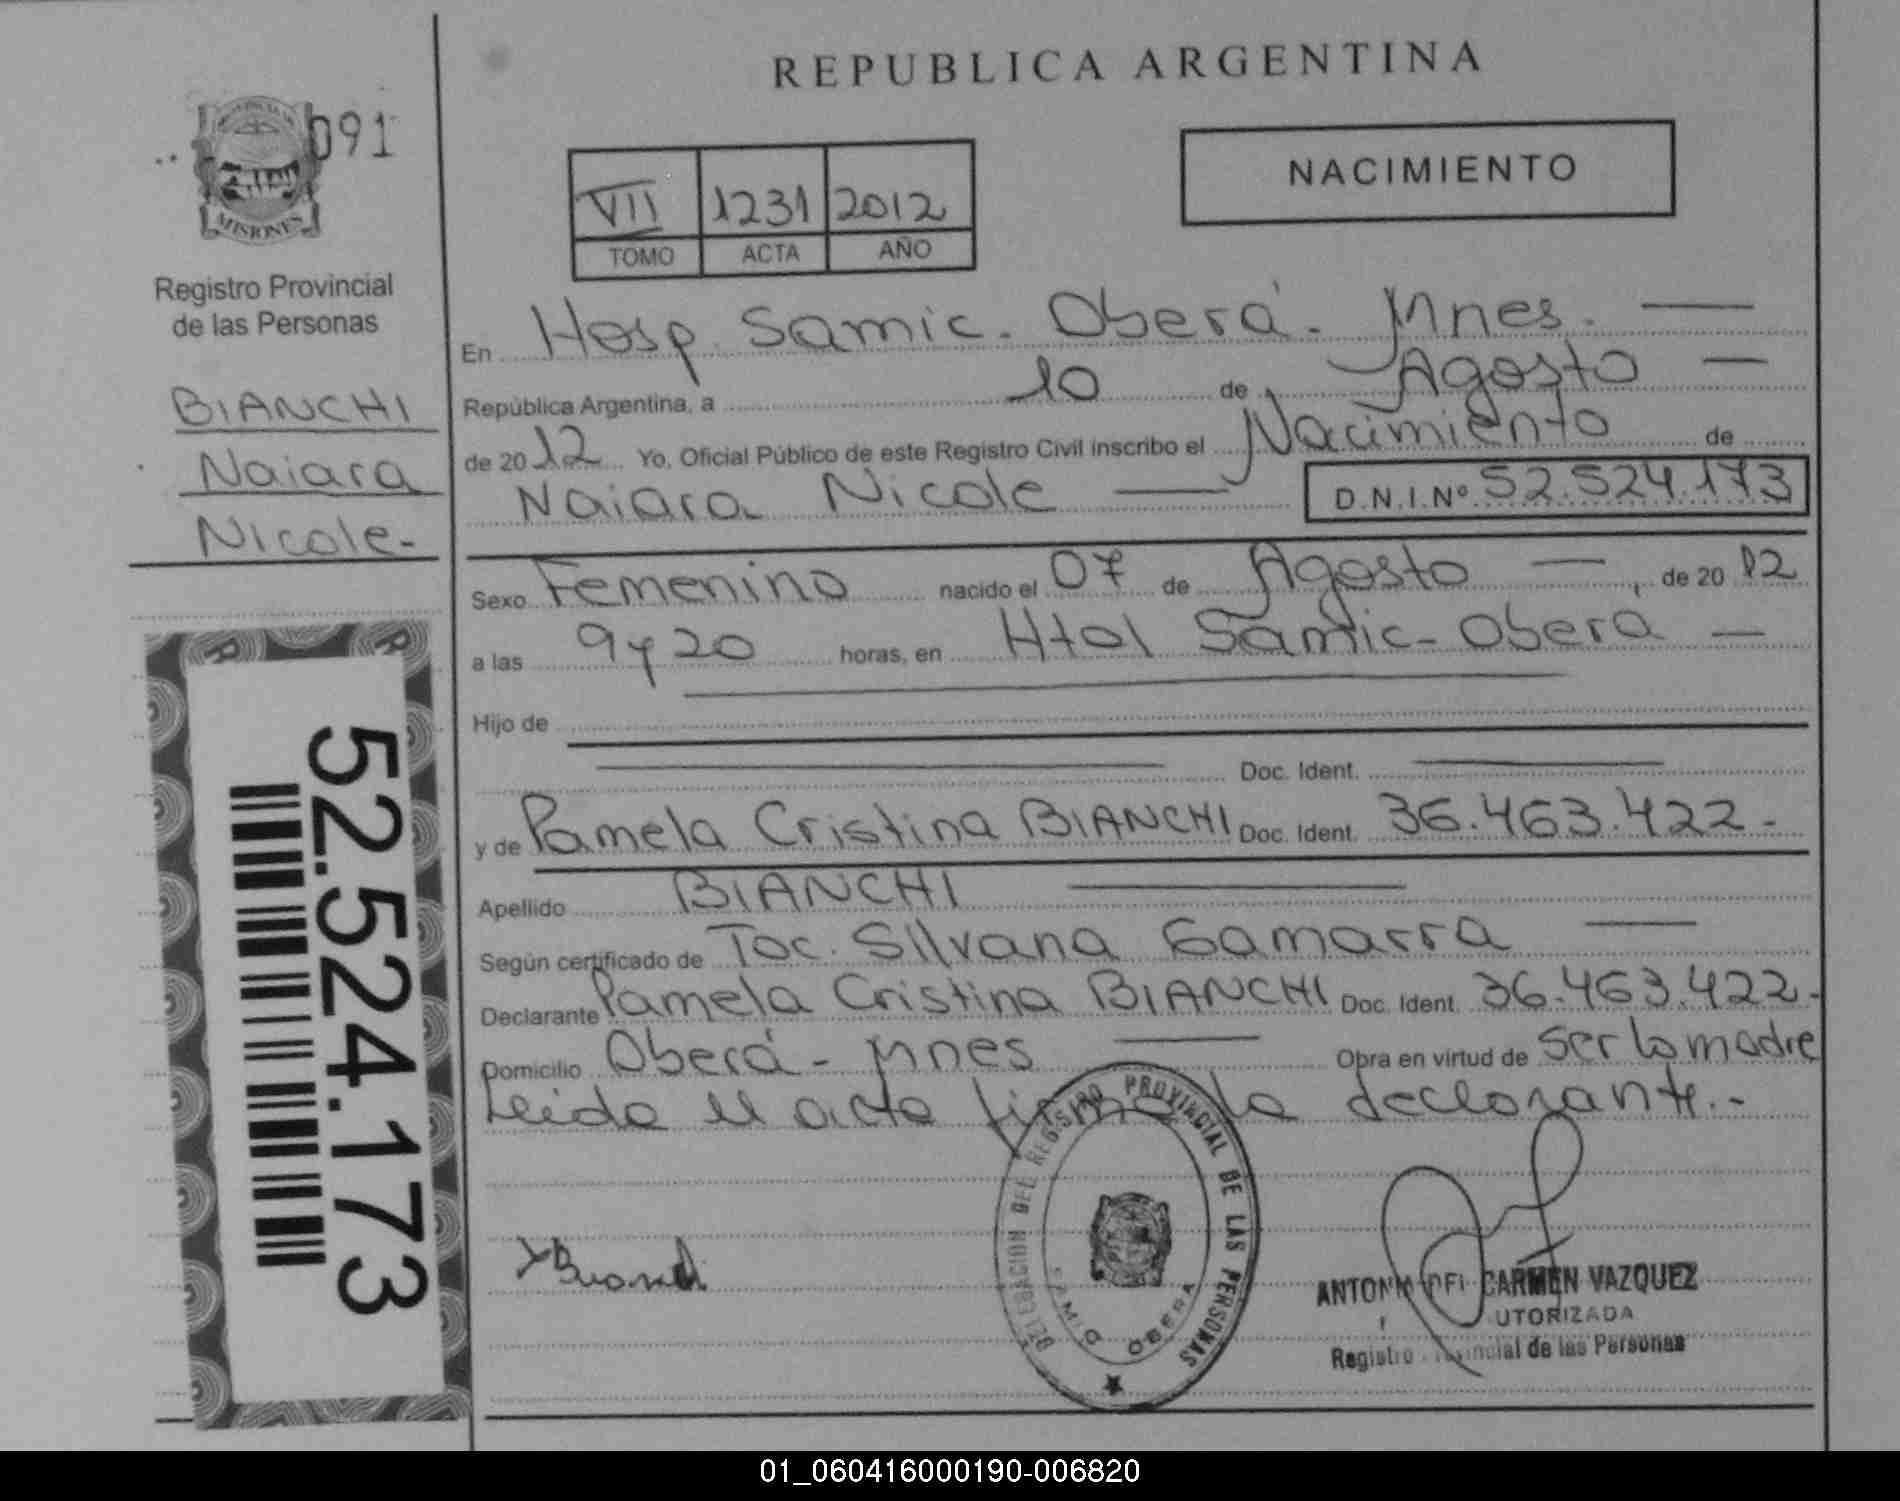 REPUBLICA ARGENTINA
091
MISIONES
Registro Provincial
de las Personas
BIANCHI
Naiara
Nicole-
52.524.173
VII 1231 2012
TOMO ACTA AÑO
NACIMIENTO
En Hosp. Samic. Oberá. Mnes.
República Argentina, a 10 de Agosto
de 2012 Yo, Oficial Público de este Registro Civil inscribo el Nacimiento de
Naiara Nicole D.N.I.Nº 52.524.173
Sexo Femenino nacido el 07 de Agosto, de 2012
a las 9y20 horas, en Htal Samic-Oberá
Hijo de
Doc. Ident.
y de Pamela Cristina BIANCHI Doc. Ident. 36.463.422.-
Apellido BIANCHI
Según certificado de Toc. Silvana Gamarra
Declarante Pamela Cristina BIANCHI Doc. Ident. 36.463.422.-
Domicilio Oberá - Mnes Obra en virtud de ser la madre
Leida el acta firma la declarante.-
DELEGACION DEL REGISTRO PROVINCIAL DE LAS PERSONAS
SAMIC OBERA
Bianchi
DEL CARMEN VAZQUEZ
UTORIZADA
Registro Provincial de las Personas
01_060416000190-006820